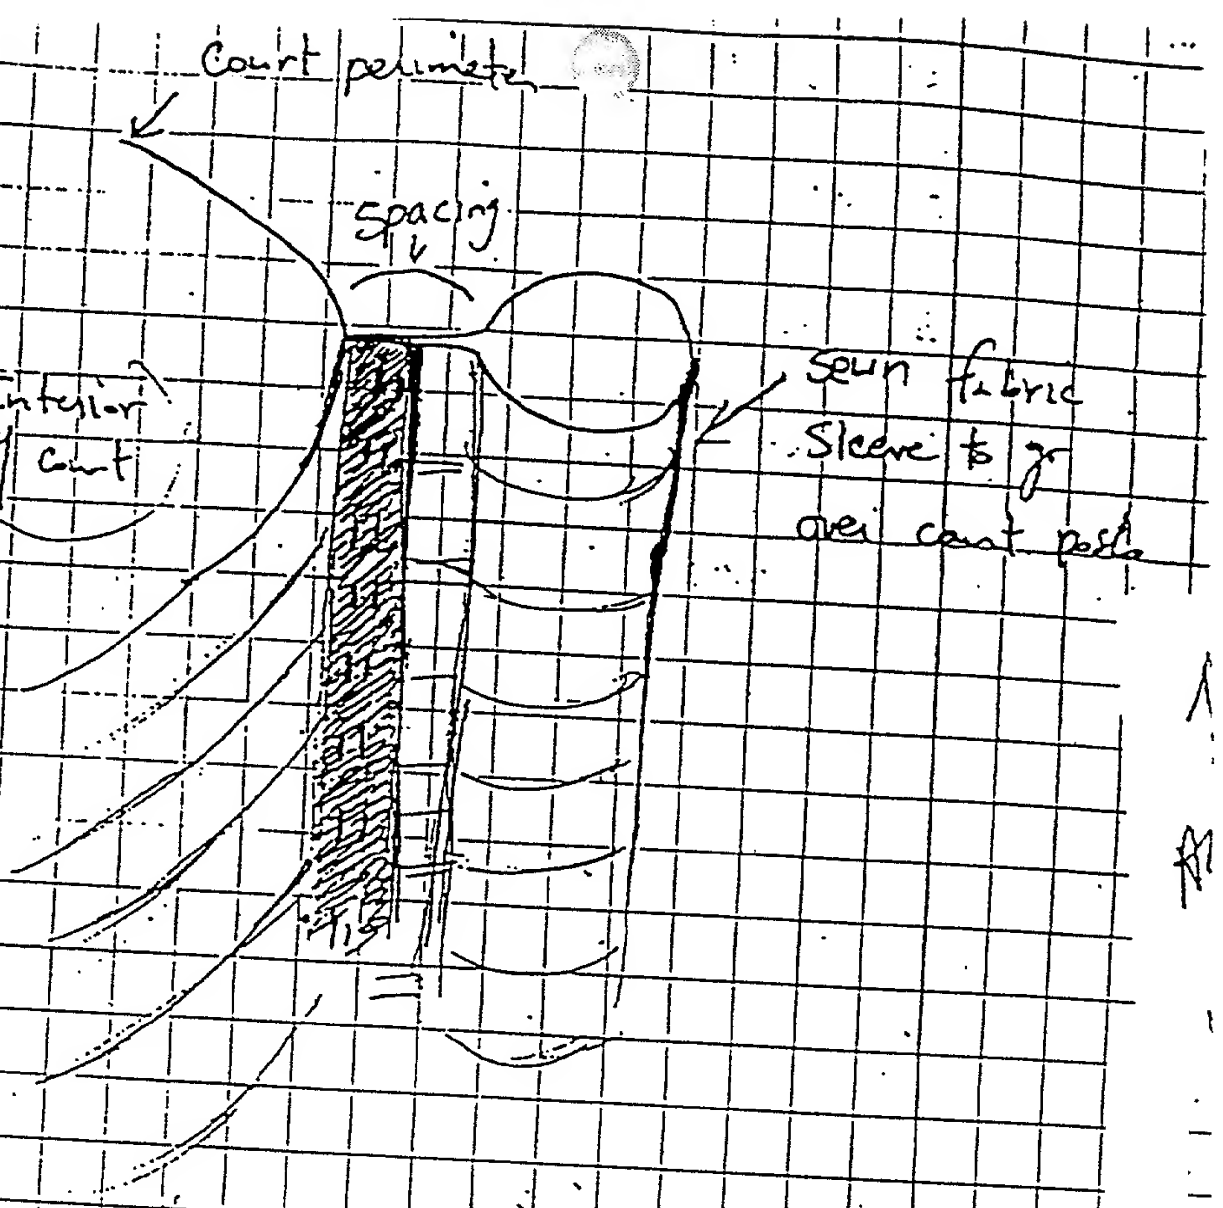 Court perimeter
Spacing
Interior
Court
Sewn fabric
Sleeve to go
over court posts